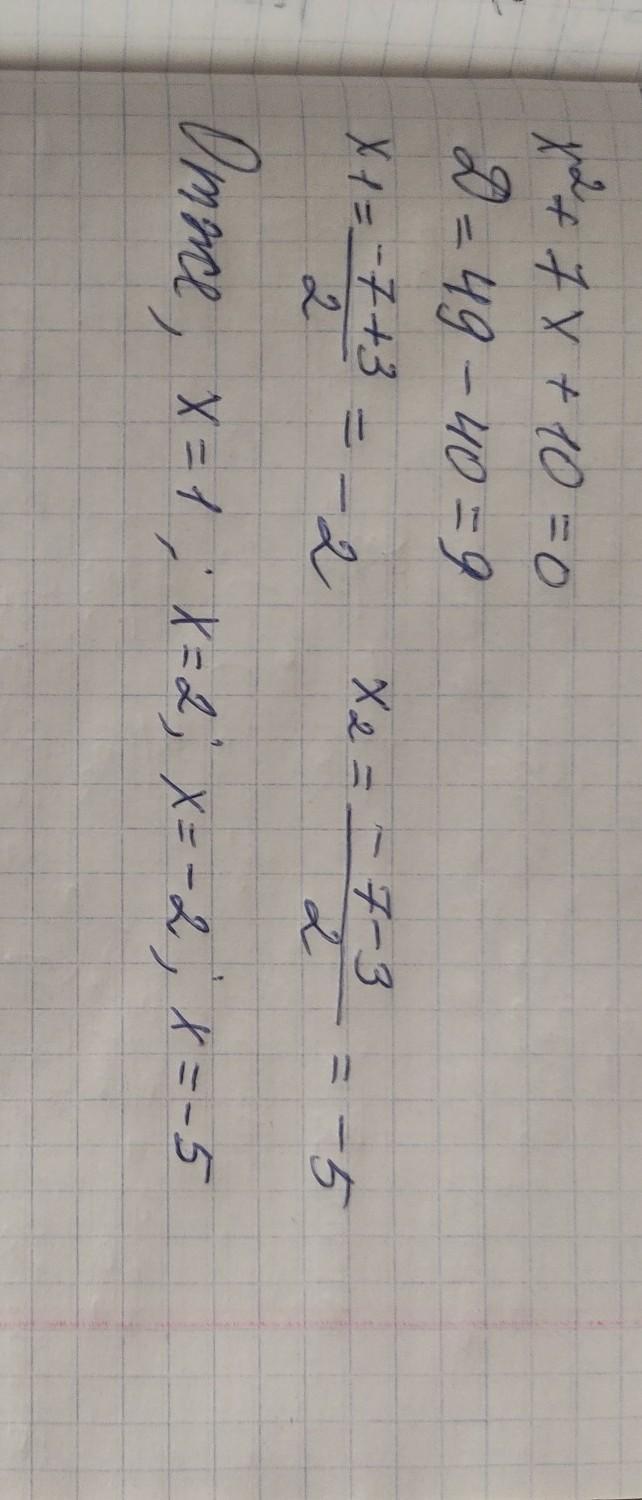 x² + 7x + 10 = 0
D = 49 - 40 = 9
x1 = (-7+3)/2 = -2 x2 = (-7-3)/2 = -5
Отже, x = 1; x = 2; x = -2; x = -5